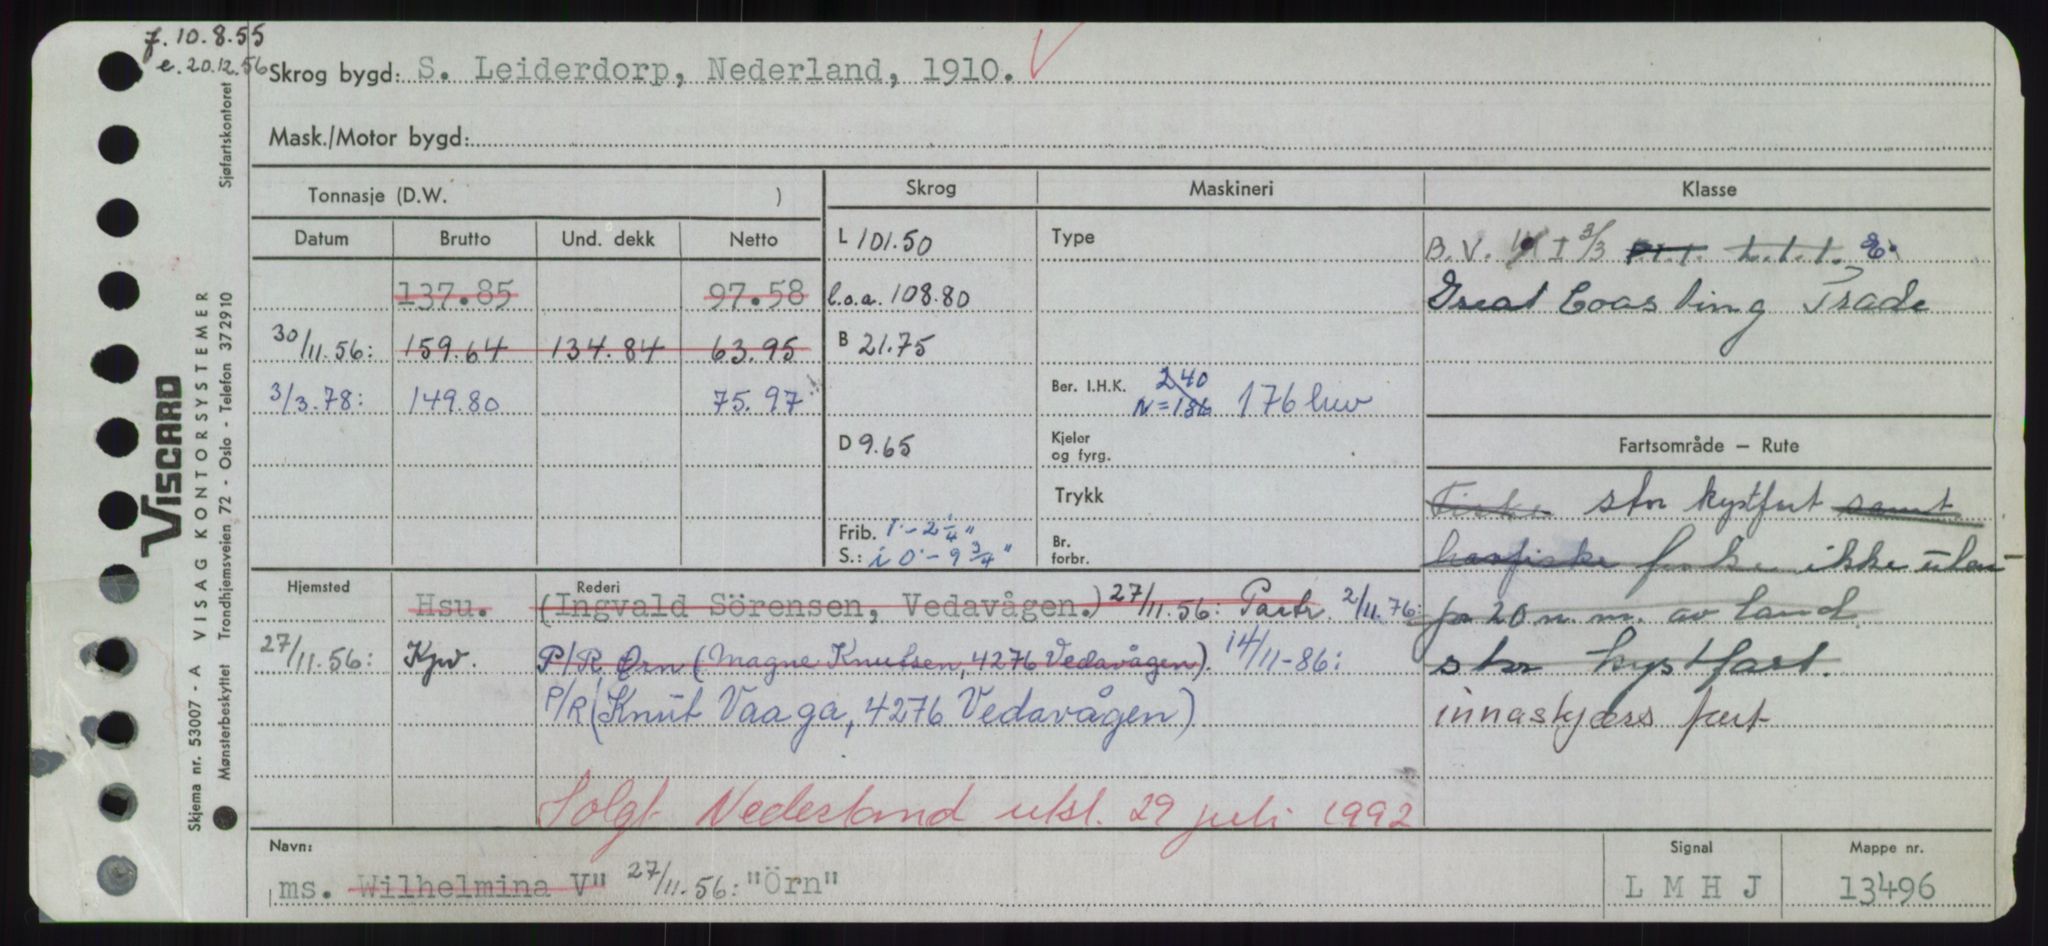 f. 10.8.55
e. 20.12.56
Skrog bygd: S. Leiderdorp, Nederland, 1910.
Mask./Motor bygd:
Tonnasje (D.W. )
Skrog
Maskineri
Klasse
Datum Brutto Und. dekk Netto
137.85 97.58
30/11.56: 159.64 134.84 63.95
3/3.78: 149.80 75.97
L 101.50
l.o.a. 108.80
B 21.75
D 9.65
Frib. 1'-2 1/4"
S.: i 0'-9 3/4"
Type
Ber. I.H.K. 240
N=186 176 hw
Kjeler
og fyrg.
Trykk
Br.
forbr.
B.V. I 3/3 L.1.1. E.
Great Coasting Trade
Fartsområde — Rute
Fiske stor kystfart samt
havfiske ikke uten-
for 20 n. m. av land.
stor kystfart.
innaskjærs fart
Hjemsted
Rederi
Hsu. (Ingvald Sörensen, Vedavågen.) 27/11.56: Partr. 2/11.76:
27/11.56: Kpv. P/R Ørn (Magne Knutsen, 4276 Vedavågen). 14/11-86:
P/R (Knut Vaaga, 4276 Vedavågen)
Solgt Nederland utsl. 29 juli 1992
Navn:
ms. Wilhelmina V" 27/11.56: "Örn"
Signal
L M H J
Mappe nr.
13496
VISCARD
Skjema nr. 53007 - A VISAG KONTORSYSTEMER
Mønsterbeskyttet Trondhjemsveien 72 - Oslo - Telefon 372910
Sjøfartskontoret